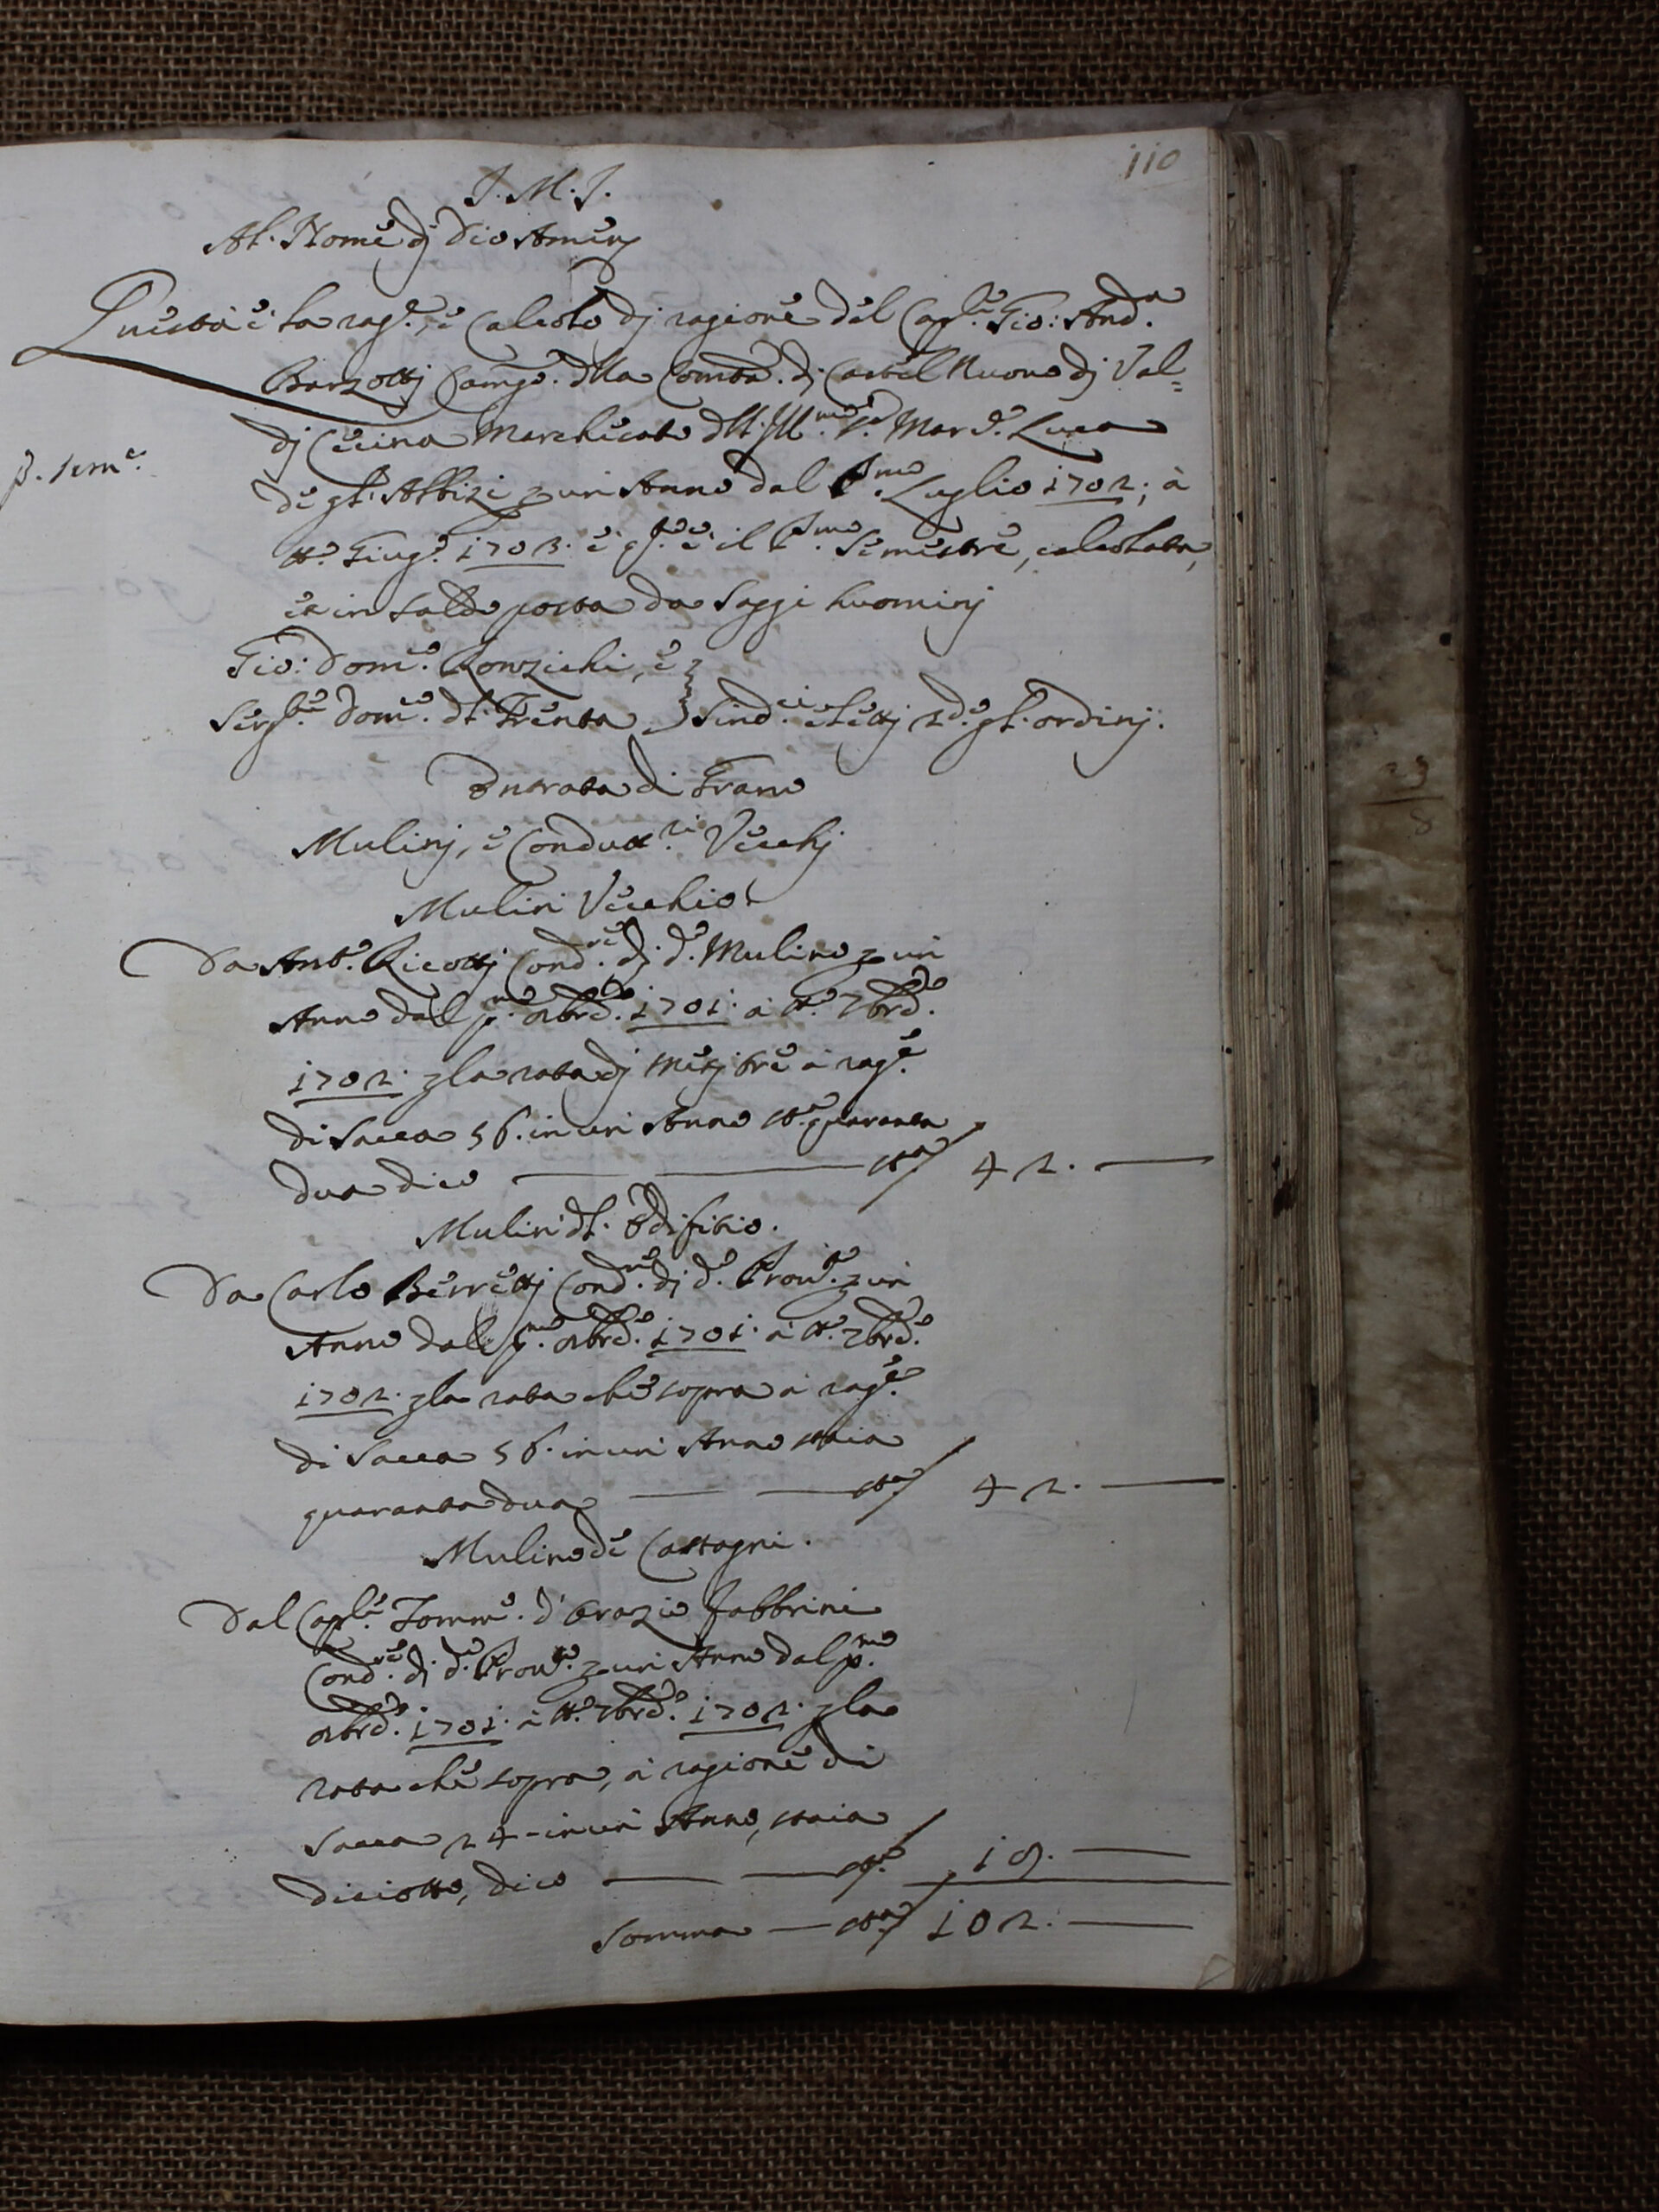 110
J. M. J.
Al. Nome dj Dio Amen
Questa è la rag.e, è Calcolo dj ragione del Cap.le Gio: And.a
Barzottj Camg.o dlla Comtà. dj Castel Nuovo dj Val=
dj Cecina Marchicato dll. Ill.mo S. Mar.e Luca
p. sem.e
de gl. Albizi p un Anno dal P.mo Luglio 1702; à
tt.o Giug.o 1703. è q.to è il P.mo Semestre, calcolata,
et in saldo posta da saggi huominj
Gio: Dom.o Ronzichi, è
Serg.te Dom.o dl. Trenta } Sind.ci elettj 2.do gl. ordinj.
Entrata di Grano
Mulinj, è Condutt.ri Vecchj
Mulin Vecchio
Da Ant.o Ricottj Cond.re dj d.o Mulino p un
Anno dal p.mo 8brē. 1701. à tt.o 7brē.
1702. p la rata dj mesj tre à rag.e
di Sacca 56. in un Anno st.a quaranta
dua dico — st.a 42. —
Mulin dl. Edifitio.
Da Carlo Berrettj Cond.re dj d.o Prov.to p un
Anno dal p.mo 8brē. 1701. à tt.o 7brē.
1702. p la rata che sopra à rag.e
di Sacca 56. in un Anno staia
quaranta dua — st.a 42. —
Mulino de Castagni.
Dal Cap.le Tomm.o d'Orazio Fabbrini
Cond.re dj d.o Prov.to p un Anno dal p.mo
8brē. 1701. à tt.o 7brē. 1702. p la
rata che sopra, à ragione di
Sacca 24 - in un Anno, staia
diciotto, dico — st.a 18. —
Somma — st.a 102. —